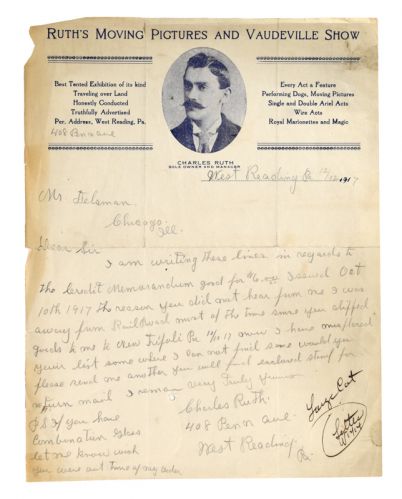 RUTH'S MOVING PICTURES AND VAUDEVILLE SHOW
Best Tented Exhibition of its kind
Traveling over Land
Honestly Conducted
Truthfully Advertised
Per. Address, West Reading, Pa.
408 Penn ave
Every Act a Feature
Performing Dogs, Moving Pictures
Single and Double Ariel Acts
Wire Acts
Royal Marionettes and Magic
CHARLES RUTH
SOLE OWNER AND MANAGER
West Reading Pa 12/12 1917
Mr. Helsman.
Chicago.
Ill.
Dear Sir
I am writing these lines in regards to
the Credit Memorandum good for $6.00 Issued Oct
10th 1917 the reason you did not hear from me I was
away from Railroad most of the time since you shipped
goods to me to New Tripoli Pa 10/10 17 now I have misplaced
your list some where I can not find some would you
please send me another you will find enclosed stamp for
return mail I remain very Truly yours
Charles Ruth.
408 Penn ave.
West Reading.
Pa.
P.S. If you have
Combination Glass
let me know wich
you were out time of my order
Large Cat
Letter